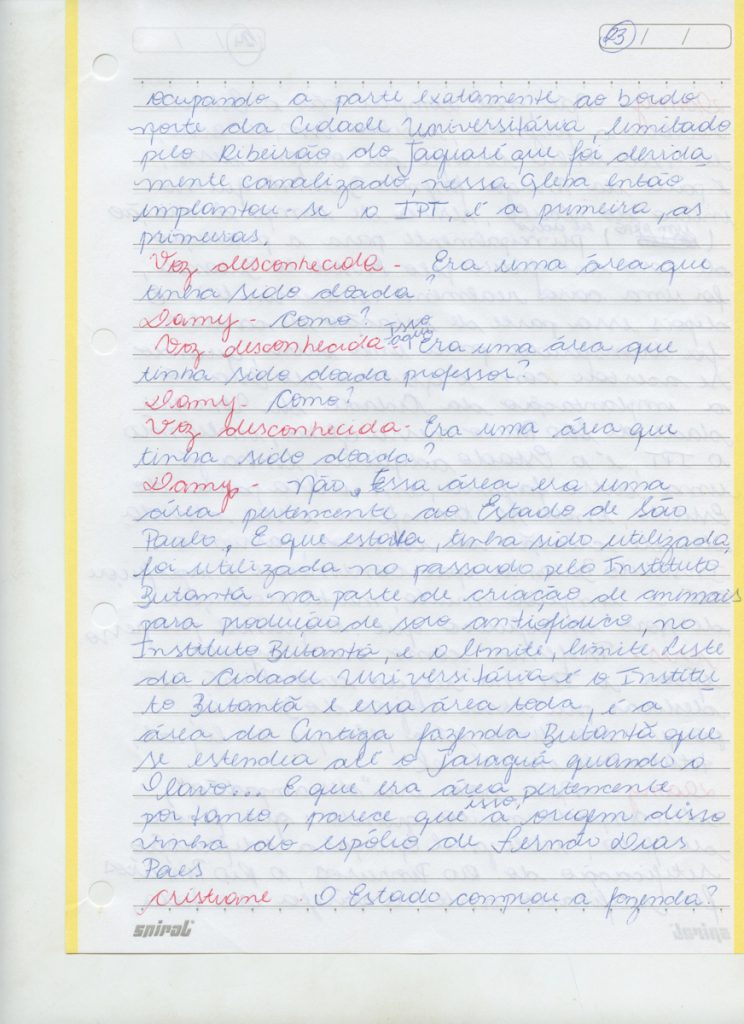 23 / /
ocupando a parte exatamente ao bordo
norte da Cidade Universitária, limitado
pelo Ribeirão do Jaguaré que foi devida
mente canalizado, nessa gleba então
implantou-se o IPT, é a primeira, as
primeiras.
Voz desconhecida - Era uma área que
tinha sido doada?
Damy - Como?
Voz desconhecida - Isso aqui Era uma área que
tinha sido doada professor?
Damy - Como?
Voz desconhecida - Era uma área que
tinha sido doada?
Damy - Não, Essa área era uma
área pertencente ao Estado de São
Paulo, E que estava, tinha sido utilizada,
foi utilizada no passado pelo Instituto
Butantã na parte de criação de animais
para produção de soro antiofídico, no
Instituto Butantã, e o limite, limite Leste
da Cidade Universitária é o Institu
to Butantã e essa área toda, é a
área da Antiga fazenda Butantã que
se estendia até o Jaraguá quando o
Olavo... E que era área pertencente
portanto, parece que isso, a origem disso
vinha do espólio de Fernão Dias
Paes
Cristiane - O Estado comprou a fazenda?
spiral